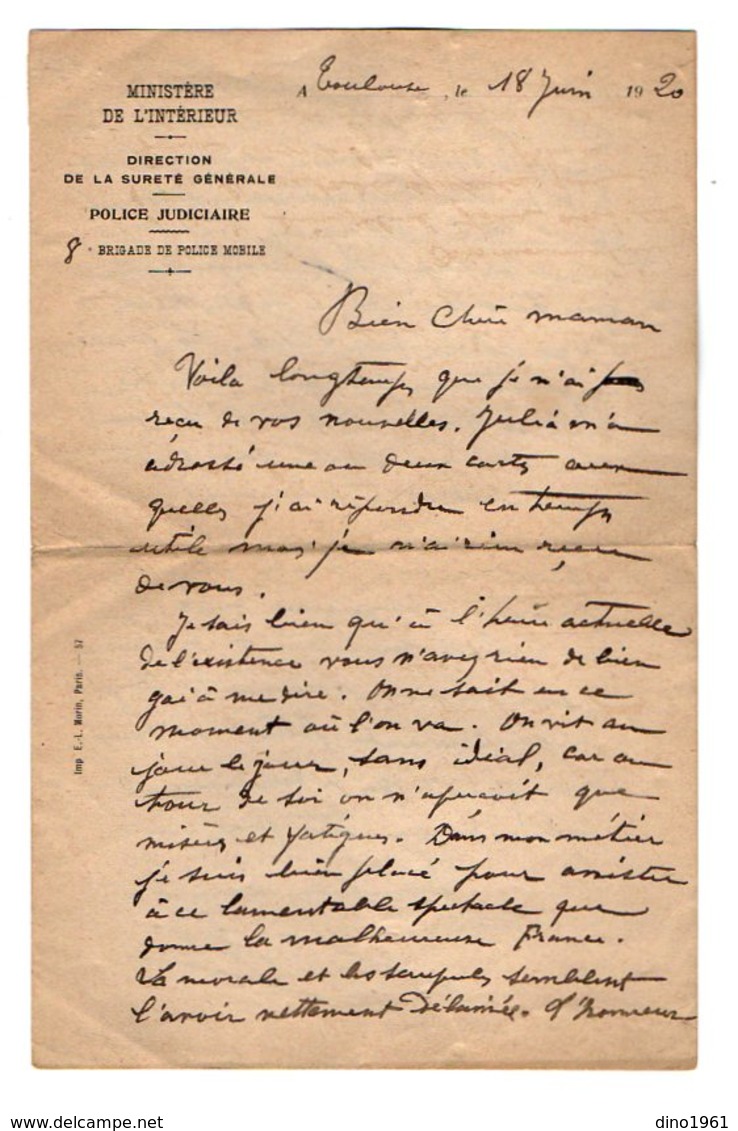 MINISTÈRE
DE L'INTÉRIEUR
DIRECTION
DE LA SURETÉ GÉNÉRALE
POLICE JUDICIAIRE
8e BRIGADE DE POLICE MOBILE
A Toulouse, le 18 Juin 1920
Bien Chère maman
Voila longtemps que je n'ai pas
reçu de vos nouvelles. Julia m'a
adressé une ou deux cartes aux
quelles j'ai répondu en temps
utile mais je n'ai rien reçu
de vous.
Je sais bien qu'à l'heure actuelle
de l'existence vous n'avez rien de bien
gai à me dire. On ne sait en ce
moment où l'on va. On vit au
jour le jour, sans idéal, car au
tour de soi on n'aperçoit que
misères et fatigues. Dans mon métier
je suis bien placé pour assister
à ce lamentable spectacle que
donne la malheureuse France.
La morale et les scrupules semblent
l'avoir nettement délaissée. L'honneur
Imp E.-L. Morin, Paris. — 57
dino1961